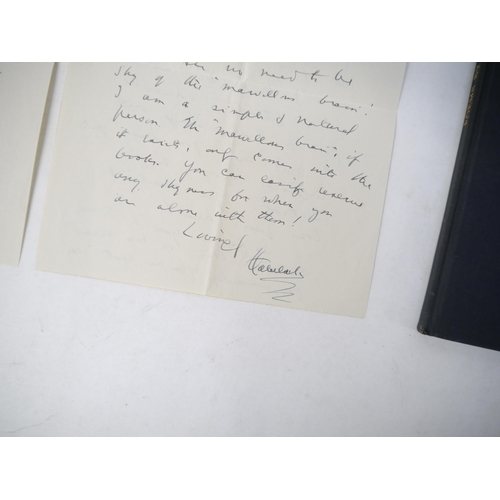 no need to be
shy of the "marvellous brain".
I am a simple & natural
person. The "marvellous brain", if
it exists, only comes into the
books. You can easily reserve
any shyness for when you
are alone with them!
Lovingly
Havelock